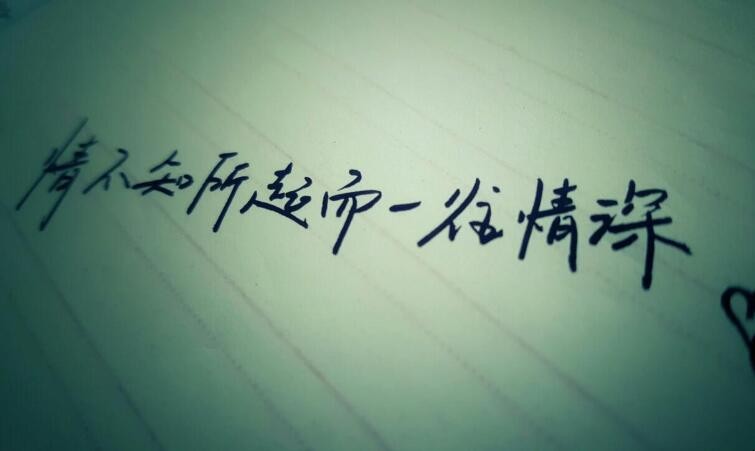 情不知所起而一往情深